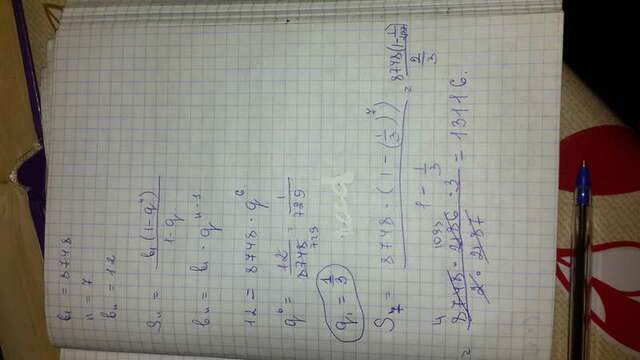 b₁ = 8748
n = 7
bₙ = 12
Sₙ = b₁(1-qⁿ) / 1-q
bₙ = b₁ · qⁿ⁻¹
12 = 8748 · q⁶
q⁶ = 12 / 8748 729 = 1 / 729
q₁ = 1/3
S₇ = 8748 · (1 - (1/3)⁷) / 1 - 1/3 =
= 8748 · 2186 · 3 / 2 · 2187 = 13116.